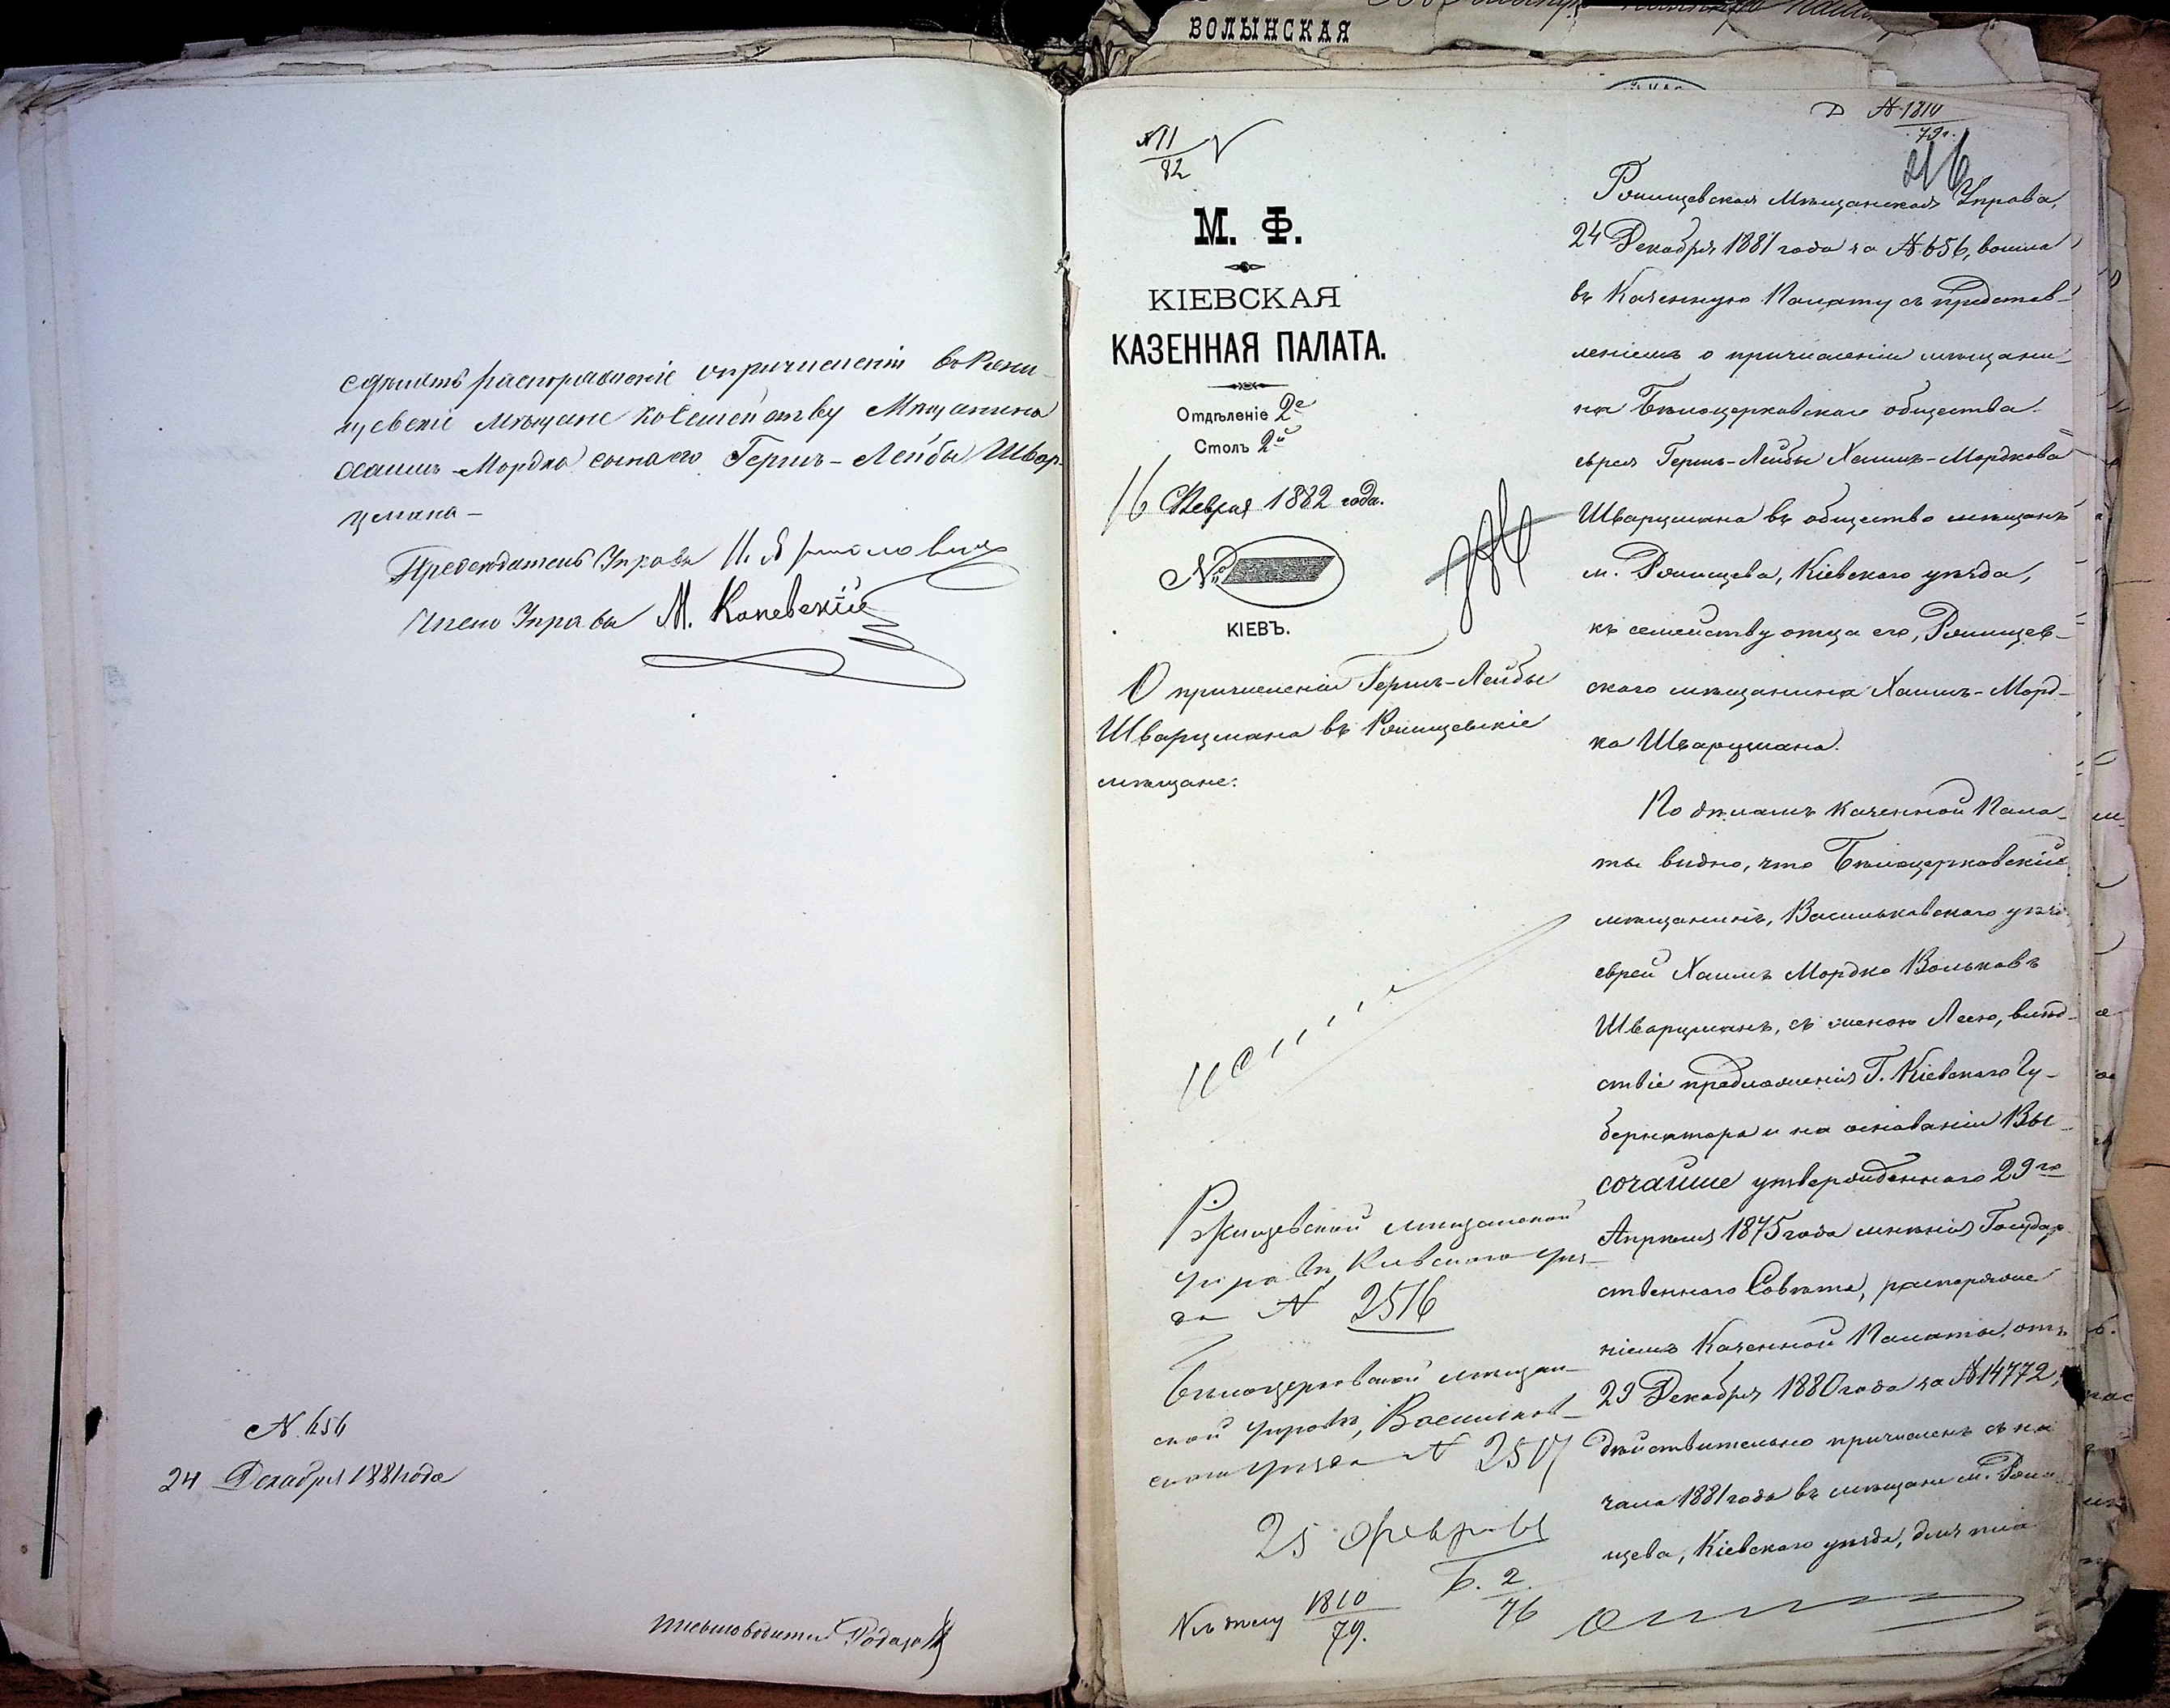 ВОЛЫНСКАЯ
сдѣлать распоряженіе опричисленіи въ Ржи-
щевскіе мѣщане ксемейству Мѣщанина
Хаимъ-Мордко сына его Герш-Лейбы Швар-
цмана-
Предсѣдатель Управы
Членъ Управы М. Каневскій
N. 656
24 Декабря 1881 года
Письмоводитель
N 11/82
М. Ф.
КІЕВСКАЯ
КАЗЕННАЯ ПАЛАТА.
Отдѣленіе 2е
Столъ 2й
16 Февраля 1882 года.
№
КІЕВЪ.
О причисленіи Герш-Лейбы
Шварцмана въ Ржищевскіе
мѣщане.
Ржищевской мѣщанской
управѣ, Кіевскаго уѣз-
да N 2516
Бѣлоцерковской мѣщан-
ской управѣ, Васильков-
скаго уѣзда N 2517
25 февраля
Къ дѣлу 1810/79.
Б. 2/76
N 1810/79г.
216
Ржищевская Мѣщанская Управа,
24 Декабря 1881 года за N 656, вошла
въ Казенную Палату съ представ-
леніемъ о причисленіи мѣщани-
на Бѣлоцерковскаго общества
еврея Герш-Лейбы Хаимъ-Мордкова
Шварцмана въ общество мѣщанъ
м. Ржищева, Кіевскаго уѣзда,
къ семейству отца его, Ржищев-
скаго мѣщанина Хаимъ-Морд-
ка Шварцмана.
По дѣламъ Казенной Пала-
ты видно, что Бѣлоцерковскій
мѣщанинъ, Васильковскаго уѣз.
еврей Хаимъ Мордко Вольковъ
Шварцманъ, съ женою Леею, вслѣд-
ствіе предложенія Г. Кіевскаго Гу-
бернатора и на основаніи Вы-
сочайше утвержденнаго 29го
Апрѣля 1875 года мнѣнія Государ-
ственнаго Совѣта, распоряже-
ніемъ Казенной Палаты, отъ
29 Декабря 1880 года за N 14772,
дѣйствительно причисленъ съ на-
чала 1881 года въ мѣщане м. Ржи-
щева, Кіевскаго уѣзда, для пла-